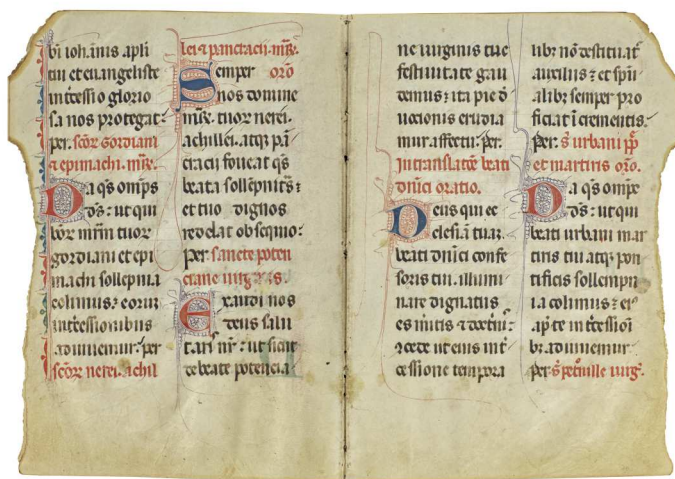 bi ioh̄annis apl̄i
tui et euangeliste
int̄cessio glorio
sa nos protegat⁊
per. sc̄oꝝ gordiani
⁊ epimachi. m̄r̄.
Da qs om̄ps
d̄s: ut qui
boꝝ mr̄m tuoꝝ
gordiani et epi
machi sollepnia
colimus⁊ eoꝝ
int̄cessionibus
adiuuemur. per
sc̄oꝝ nerei. achil
lei ⁊ pancracii. m̄r̄.
Semper oro
nos domine
m̄r̄. tuoꝝ nerei.
achillei. atqꝫ pā
cracii foueat qs
beata sollēpnitas⁊
et tuo dignos
reddat obsequio:
per. sancte poten
ciane uirginis.
Exaudi nos
deus salu
taris nr̄: ut sicut
de beate potencia
ne uirginis tue
festiuitate gau
demus: ita pie d̄
uocionis erudia
mur affectu. per.
In translat̄e beati
dn̄ici oratio.
Deus qui ec
clesiā tuā
beati dn̄ici confe
soris tui. illumi
nare dignatus
es m̄itis ⁊ doct̄ris:
⁊cede ut eius int̄
cessione tempora
libꝫ nō destituat̄
auxiliis⁊ et sp̄ii
alibꝫ semper pro
ficiat īcrementis.
per. s̄ urbani pp̄
et martiris oro.
Da qs om̄pe
d̄s: ut qui
beati urbani mar
tiris tui atqꝫ pon
tificis sollempn
ia colimus⁊ ei
ap̄ te int̄cessioni
bꝫ adiuuemur.
per. s̄ pet̄nille uirḡ.